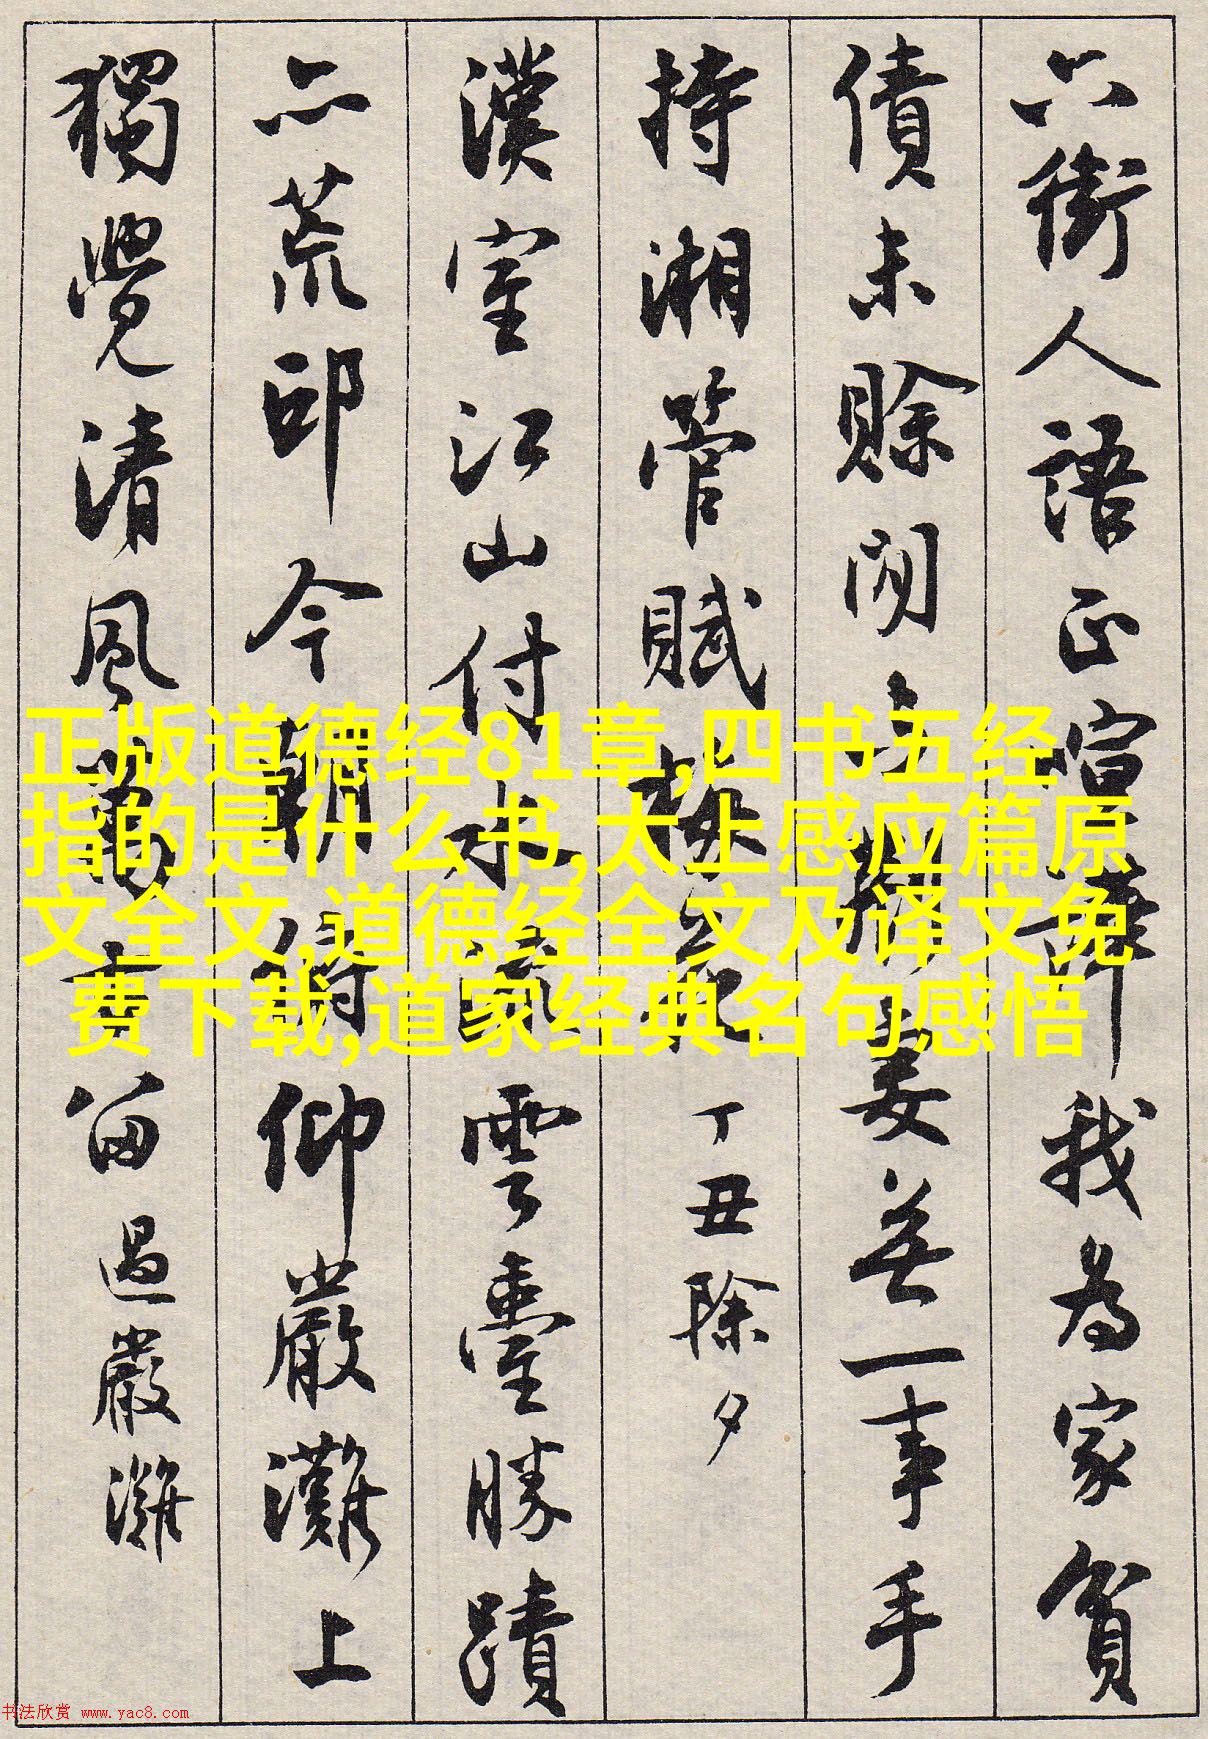 六街人語正喧譁我為家貧
債未賒閒妻無一事手
持湘管賦梅花 丁丑除夕
漢室江山付水流雲臺勝蹟
亦荒邱今朝得仰嚴灘上
獨覺清風萬古留 過嚴灘
正版道德经81章,四书五经
指的是什么书,太上感应篇原
文全文,道德经全文及译文免
费下载,道家经典名句感悟
书法欣赏 www.yac8.com